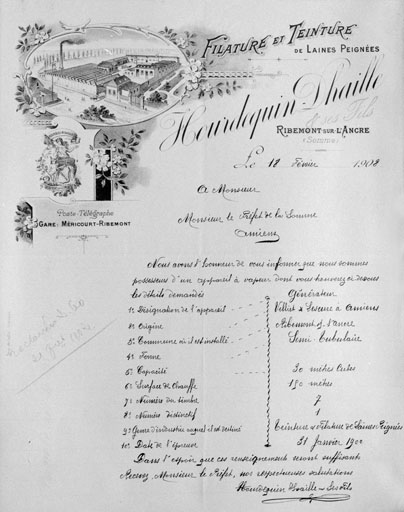 FILATURE ET TEINTURE
DE LAINES PEIGNÉES
Hourdequin Dhaille
& ses Fils
RIBEMONT-SUR-L'ANCRE
(Somme)
Le 18 Février 1902
Poste-Télégraphe
GARE: MÉRICOURT-RIBEMONT
A Monsieur
Monsieur le Préfet de la Somme
Amiens
Nous avons l'honneur de vous informer que nous sommes
possesseurs d'un appareil à vapeur dont vous trouverez ci dessous
les détails demandés
1° Désignation de l'appareil Générateur
2° Origine Villet à Amiens
3° Commune où il est installé Ribemont s/ l'Ancre
4° Forme Semi-Tubulaire
5° Capacité 30 mètres Cubes
6° Surface de Chauffe 150 mètres
7° Numéro du timbre 7
8° Numéro distinctif 1
9° Genre d'industrie auquel il est destiné Teinture & Filature de Laines Peignées
10° Date de l'épreuve 31 Janvier 1902
Dans l'espoir que ces renseignements seront suffisants
Recevez, Monsieur le Préfet, nos respectueuses salutations
Hourdequin Dhaille & ses Fils